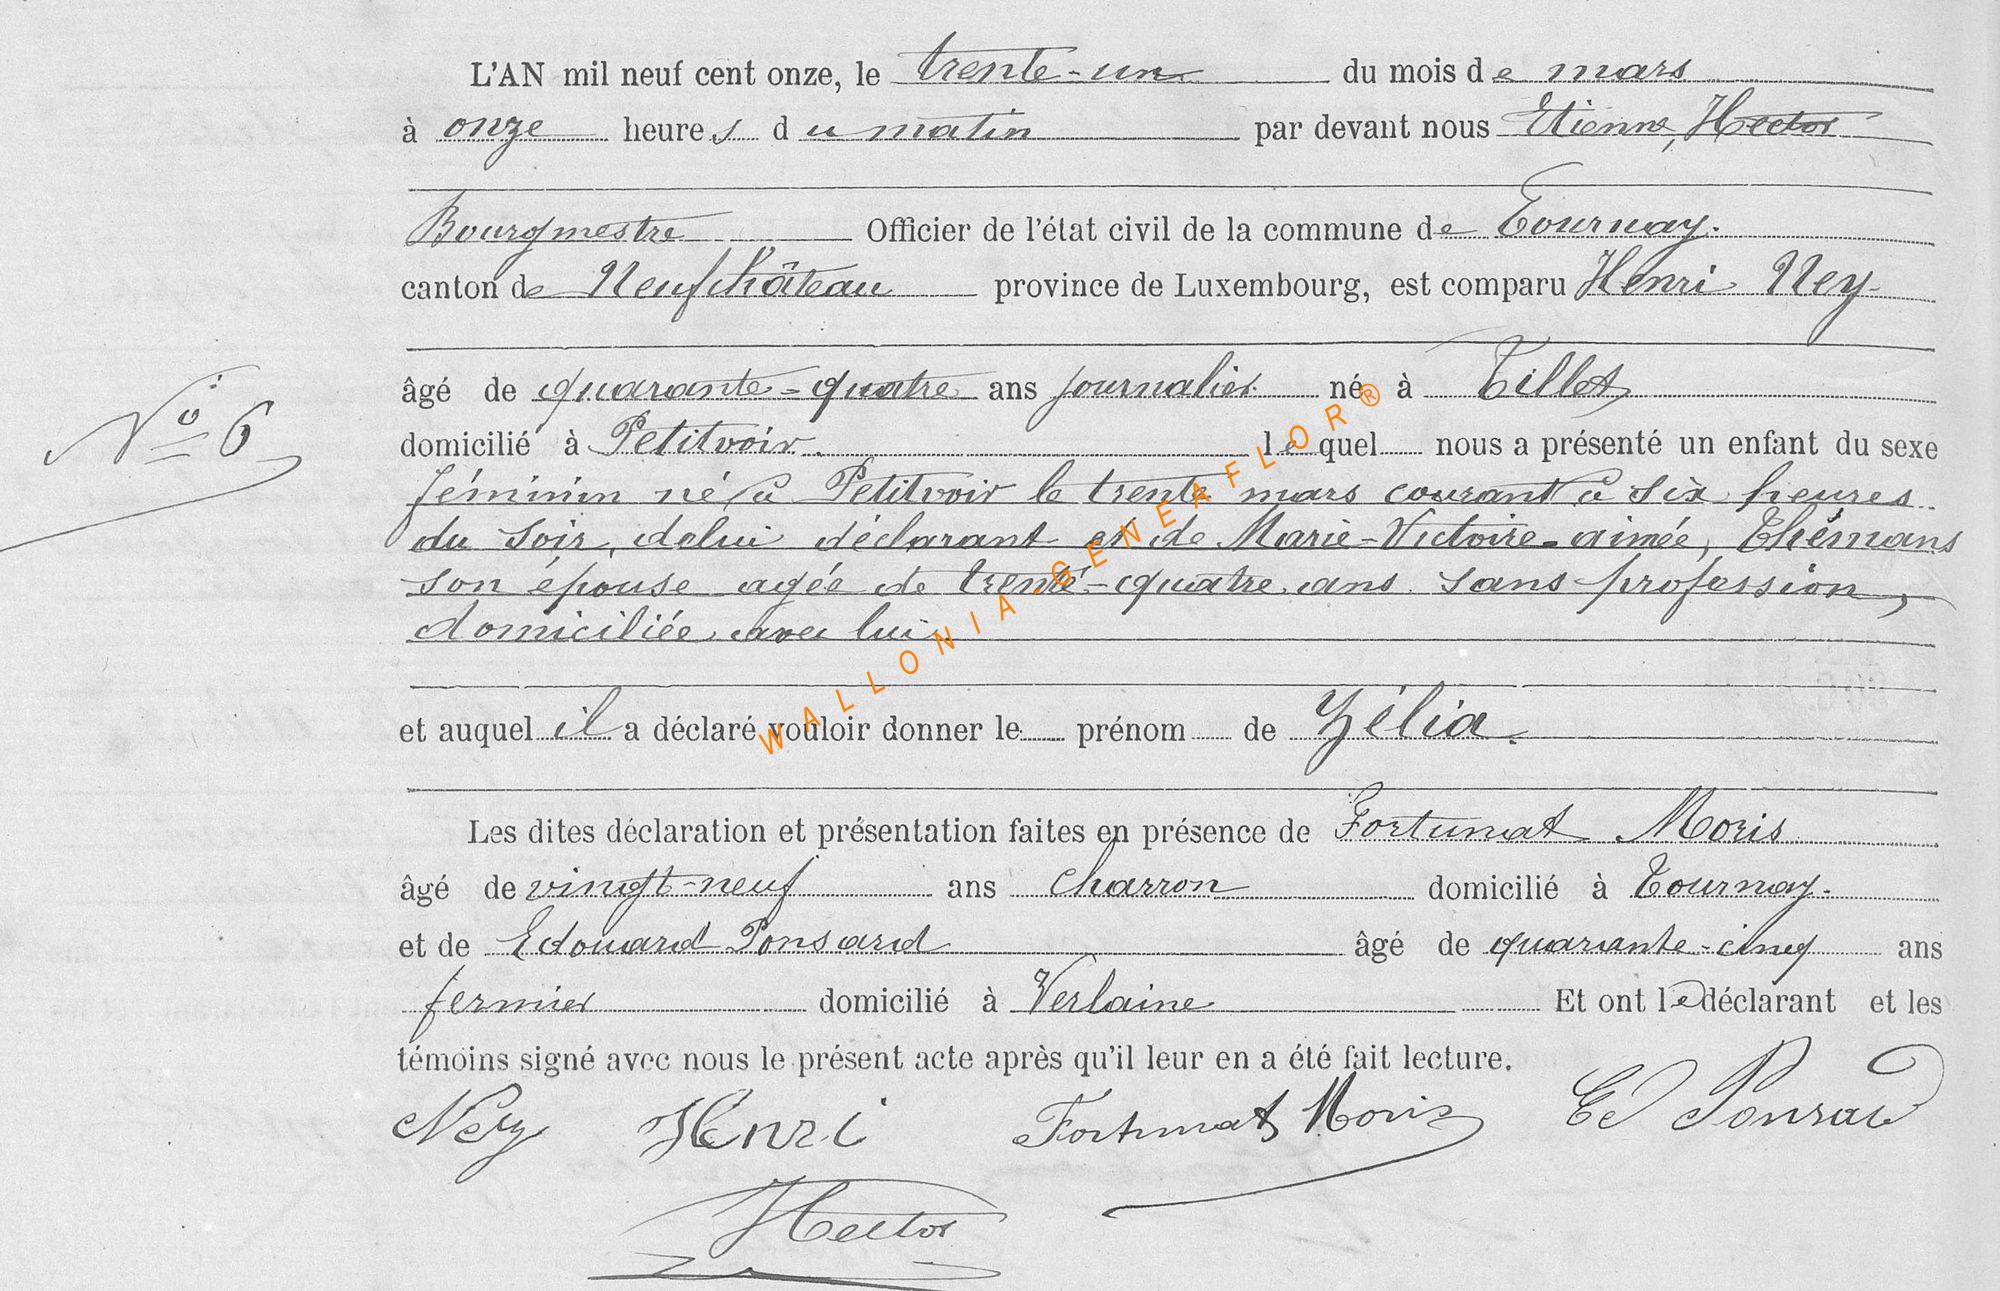 L'AN mil neuf cent onze, le trente-un du mois de mars
à onze heures du matin par devant nous Etienne, Hector
Bourgmestre Officier de l'état civil de la commune de Tournay.
canton de Neufchâteau province de Luxembourg, est comparu Henri Ney
N° 6
âgé de quarante-quatre ans journalier né à Tillet
domicilié à Petitvoir. lequel nous a présenté un enfant du sexe
féminin né à Petitvoir le trente mars courant à six heures
du soir, de lui déclarant et de Marie-Victoire-aimée, Thémans
son épouse agée de trente-quatre ans sans profession,
domiciliée avec lui
et auquel il a déclaré vouloir donner le prénom de Zélia.
Les dites déclaration et présentation faites en présence de Fortunat Moris
âgé de vingt-neuf ans charron domicilié à Tournay.
et de Edouard Ponsard âgé de quarante-cinq ans
fermier domicilié à Verlaine Et ont le déclarant et les
témoins signé avec nous le présent acte après qu'il leur en a été fait lecture.
Ney Henri Fortunat Moris Ed Ponsard
Hector
WALLONIA-GENEAFLOR®